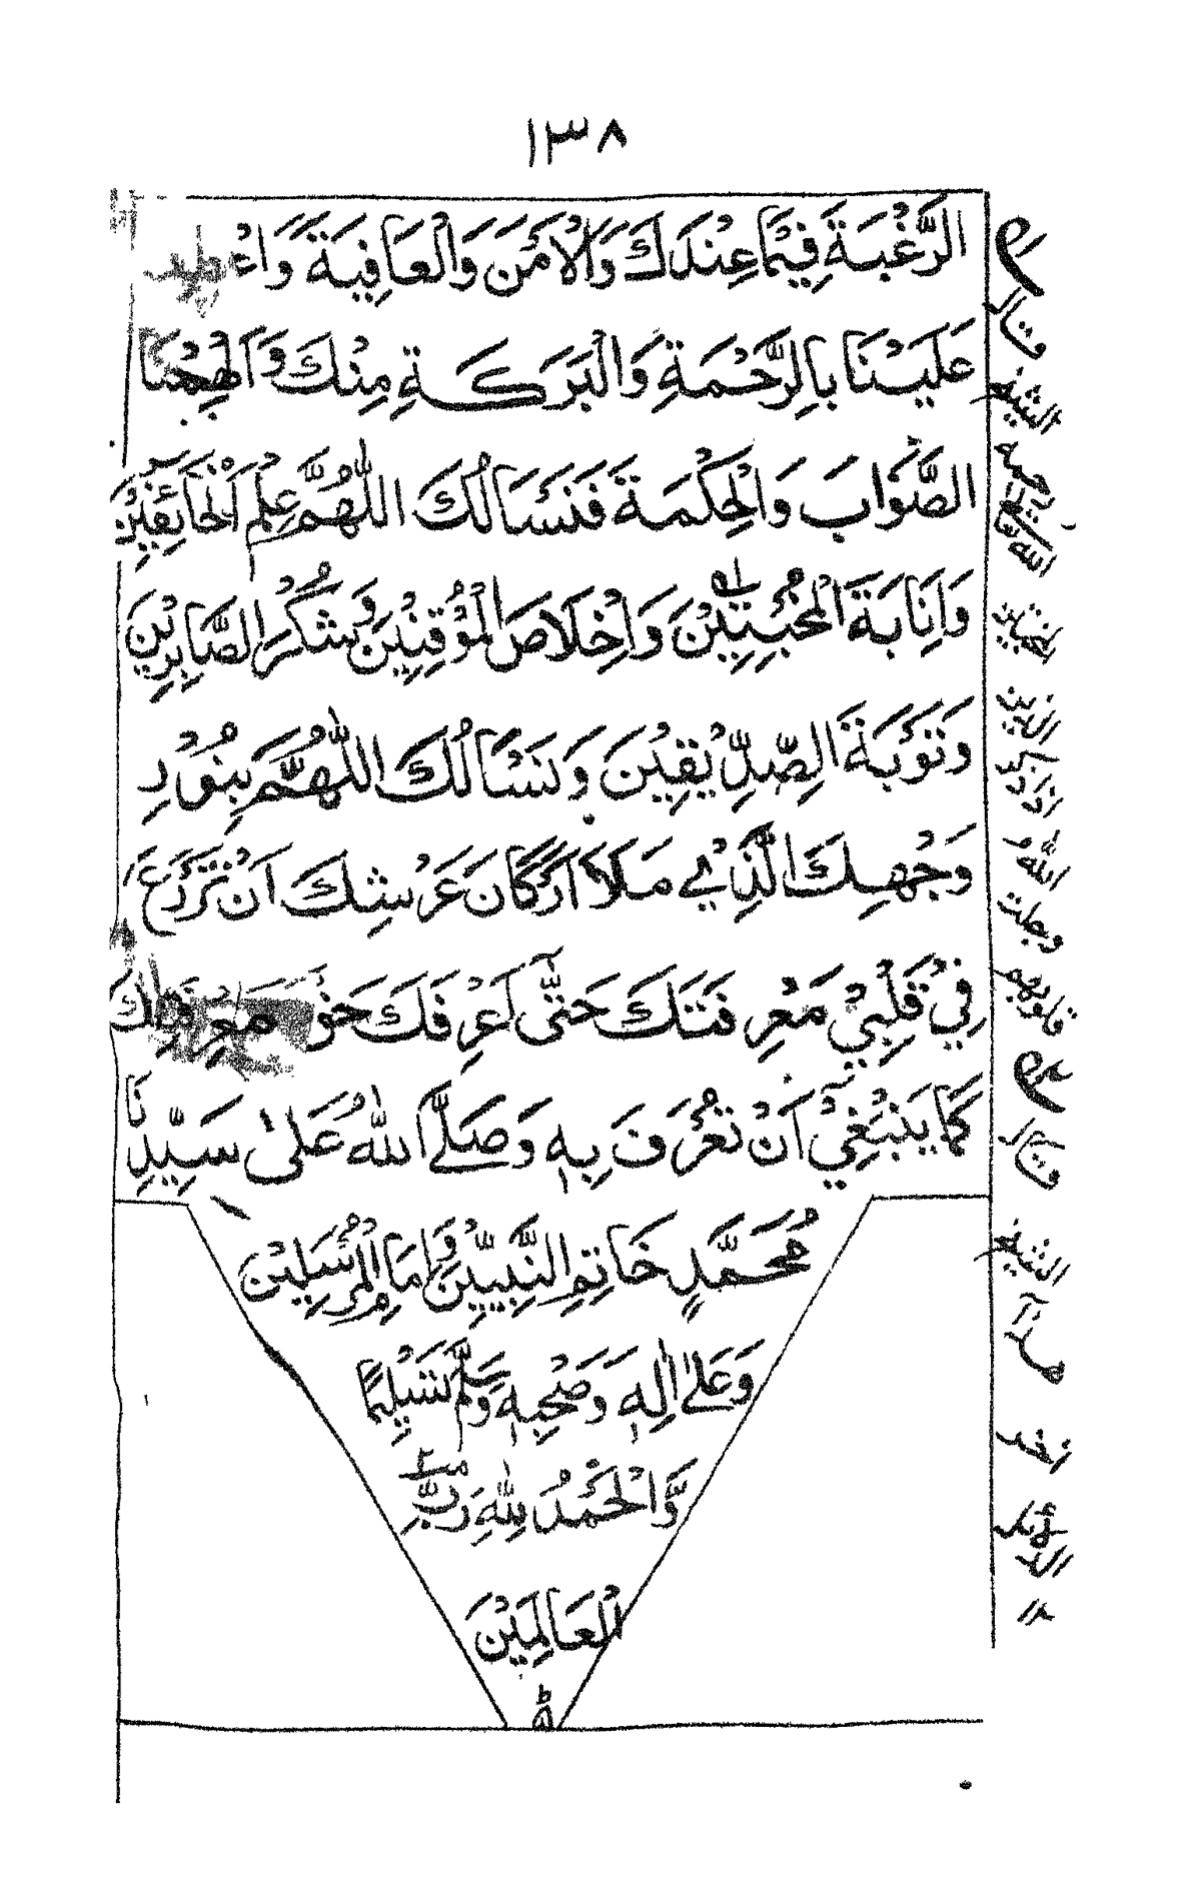 ١٣٨
الرَّغْبَةَ فِيْمَا عِنْدَكَ وَالْاَمْنَ وَالْعَافِيَةَ وَاعْطِفْ
عَلَيْنَا بِالرَّحْمَةِ وَالْبَرَكَةِ مِنْكَ وَاَلْهِمْنَا
الصَّوَابَ وَالْحِكْمَةَ فَنَسْأَلُكَ اللّٰهُمَّ عِلْمَ الْخَائِفِيْنَ
وَاِنَابَةَ الْمُخْبِتِيْنَ وَاِخْلَاصَ الْمُؤْقِنِيْنَ وَشُكْرَ الصَّابِرِيْنَ
وَتَوْبَةَ الصِّدِّيْقِيْنَ وَنَسْأَلُكَ اللّٰهُمَّ بِنُوْرِ
وَجْهِكَ الَّذِيْ مَلَأَ اَرْكَانَ عَرْشِكَ اَنْ تَزْرَعَ
فِيْ قَلْبِيْ مَعْرِفَتَكَ حَتّٰى اَعْرِفَكَ حَقَّ مَعْرِفَتِكَ
كَمَا يَنْبَغِيْ اَنْ تُعْرَفَ بِهٖ وَصَلَّى اللّٰهُ عَلٰى سَيِّدِنَا
مُحَمَّدٍ خَاتِمِ النَّبِيِّيْنَ وَاِمَامِ الْمُرْسَلِيْنَ
وَعَلٰى اٰلِهٖ وَصَحْبِهٖ وَسَلَّمَ تَسْلِيْمًا
وَّالْحَمْدُ لِلّٰهِ رَبِّ
الْعَالَمِيْنَ
قال
الشيخ
رحمه
الله
الله
قال
الشيخ